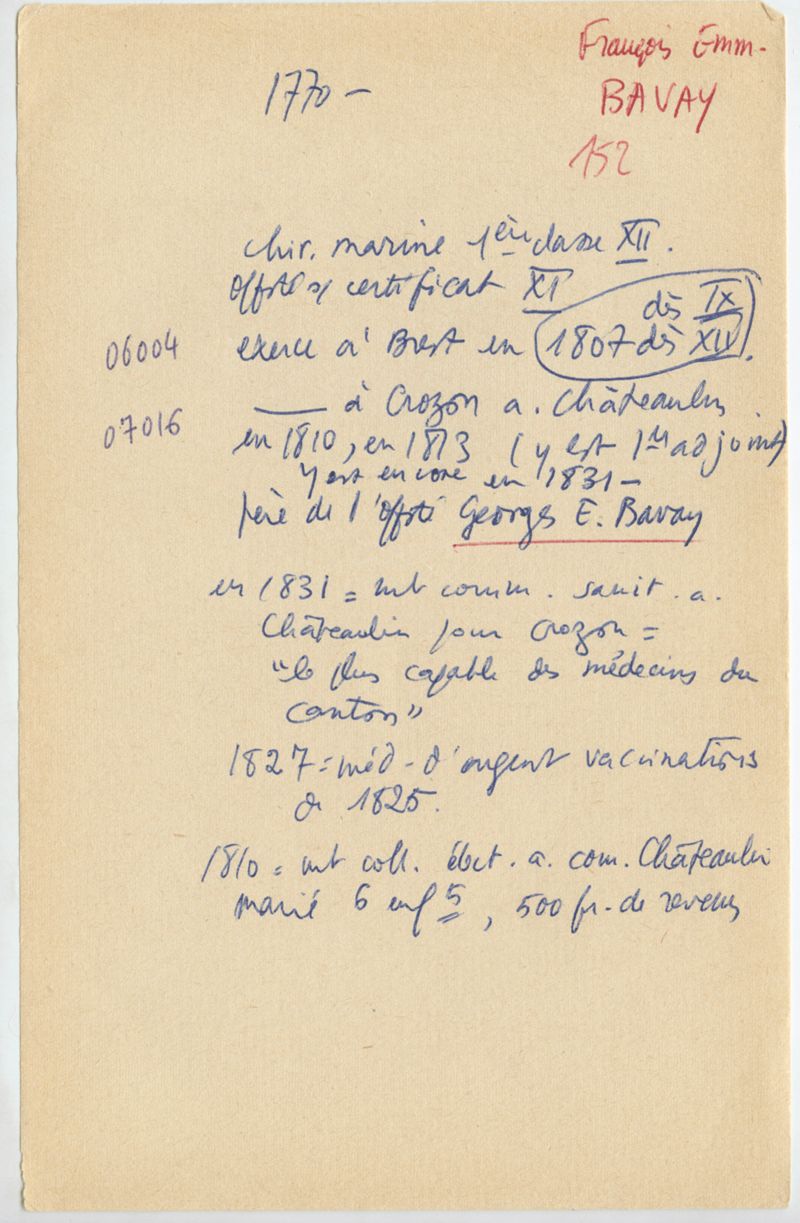 François Emm-
BAVAY
152
1770 -
chir. marine 1ère classe XII.
certificat XI
dès IX
06004 exerce à Brest en 1807 dès XII.
07016 ___ à Crozon a. Châteaulin
en 1810, en 1813 (y est 1er adjoint)
y est encore en 1831 -
père de l'offsté Georges E. Bavay
en 1831 = mb comm. sanit. a.
Châteaulin pour Crozon =
"le plus capable des médecins du
canton"
1827 = méd. d'argent vaccinations
de 1825.
1810 = mb coll. élect. a. com. Châteaulin
marié 6 enf 5, 500 fr. de revenus